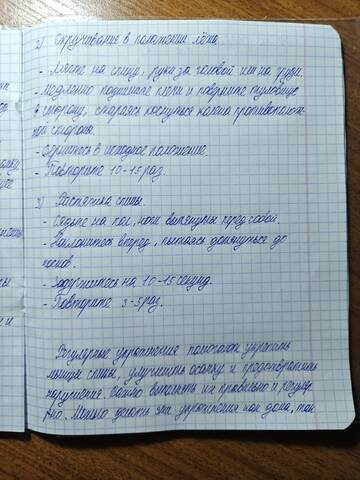 2) Скручивание в положении лёжа.
- Лягте на спину, руки за головой или на груди.
- Медленно поднимите плечи и поверните туловище
в сторону, стараясь коснуться колена противополож-
ной стороны.
- Вернитесь в исходное положение.
- Повторите 10-15 раз.
3) Растяжка спины.
- Сядьте на пол, ноги вытянуты перед собой.
- Наклонитесь вперёд, пытаясь дотянуться до
носков.
- Задержитесь на 10-15 секунд.
- Повторите 3-5 раз.
Регулярные упражнения помогают укрепить
мышцы спины, улучшить осанку и предотвратить
нарушения. Важно выполнять их правильно и регуляр-
но. Можно делать эти упражнения как дома, так